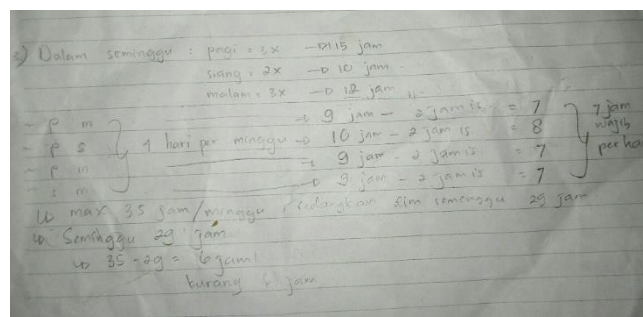 3) Dalam seminggu : pagi = 3x → 15 jam
siang = 2x → 10 jam
malam = 3x → 12 jam
- p m → 9 jam - 2 jam is = 7
- p s } 4 hari per minggu → 10 jam - 2 jam is = 8
- p m → 9 jam - 2 jam is = 7
- s m → 9 jam - 2 jam is = 7
} 7 jam
wajib
per ha
↳ max 35 jam/minggu, sedangkan seminggu 29 jam
↳ Seminggu 29 jam
↳ 35 - 29 = 6 jam!
kurang 6 jam